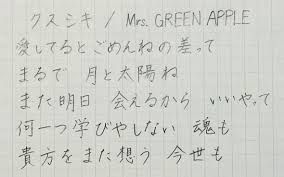 クスシキ / Mrs. GREEN APPLE
愛してるとごめんねの差って
まるで 月と太陽ね
また明日 会えるから いいやって
何一つ学びやしない 魂も
貴方をまた想う 今世も